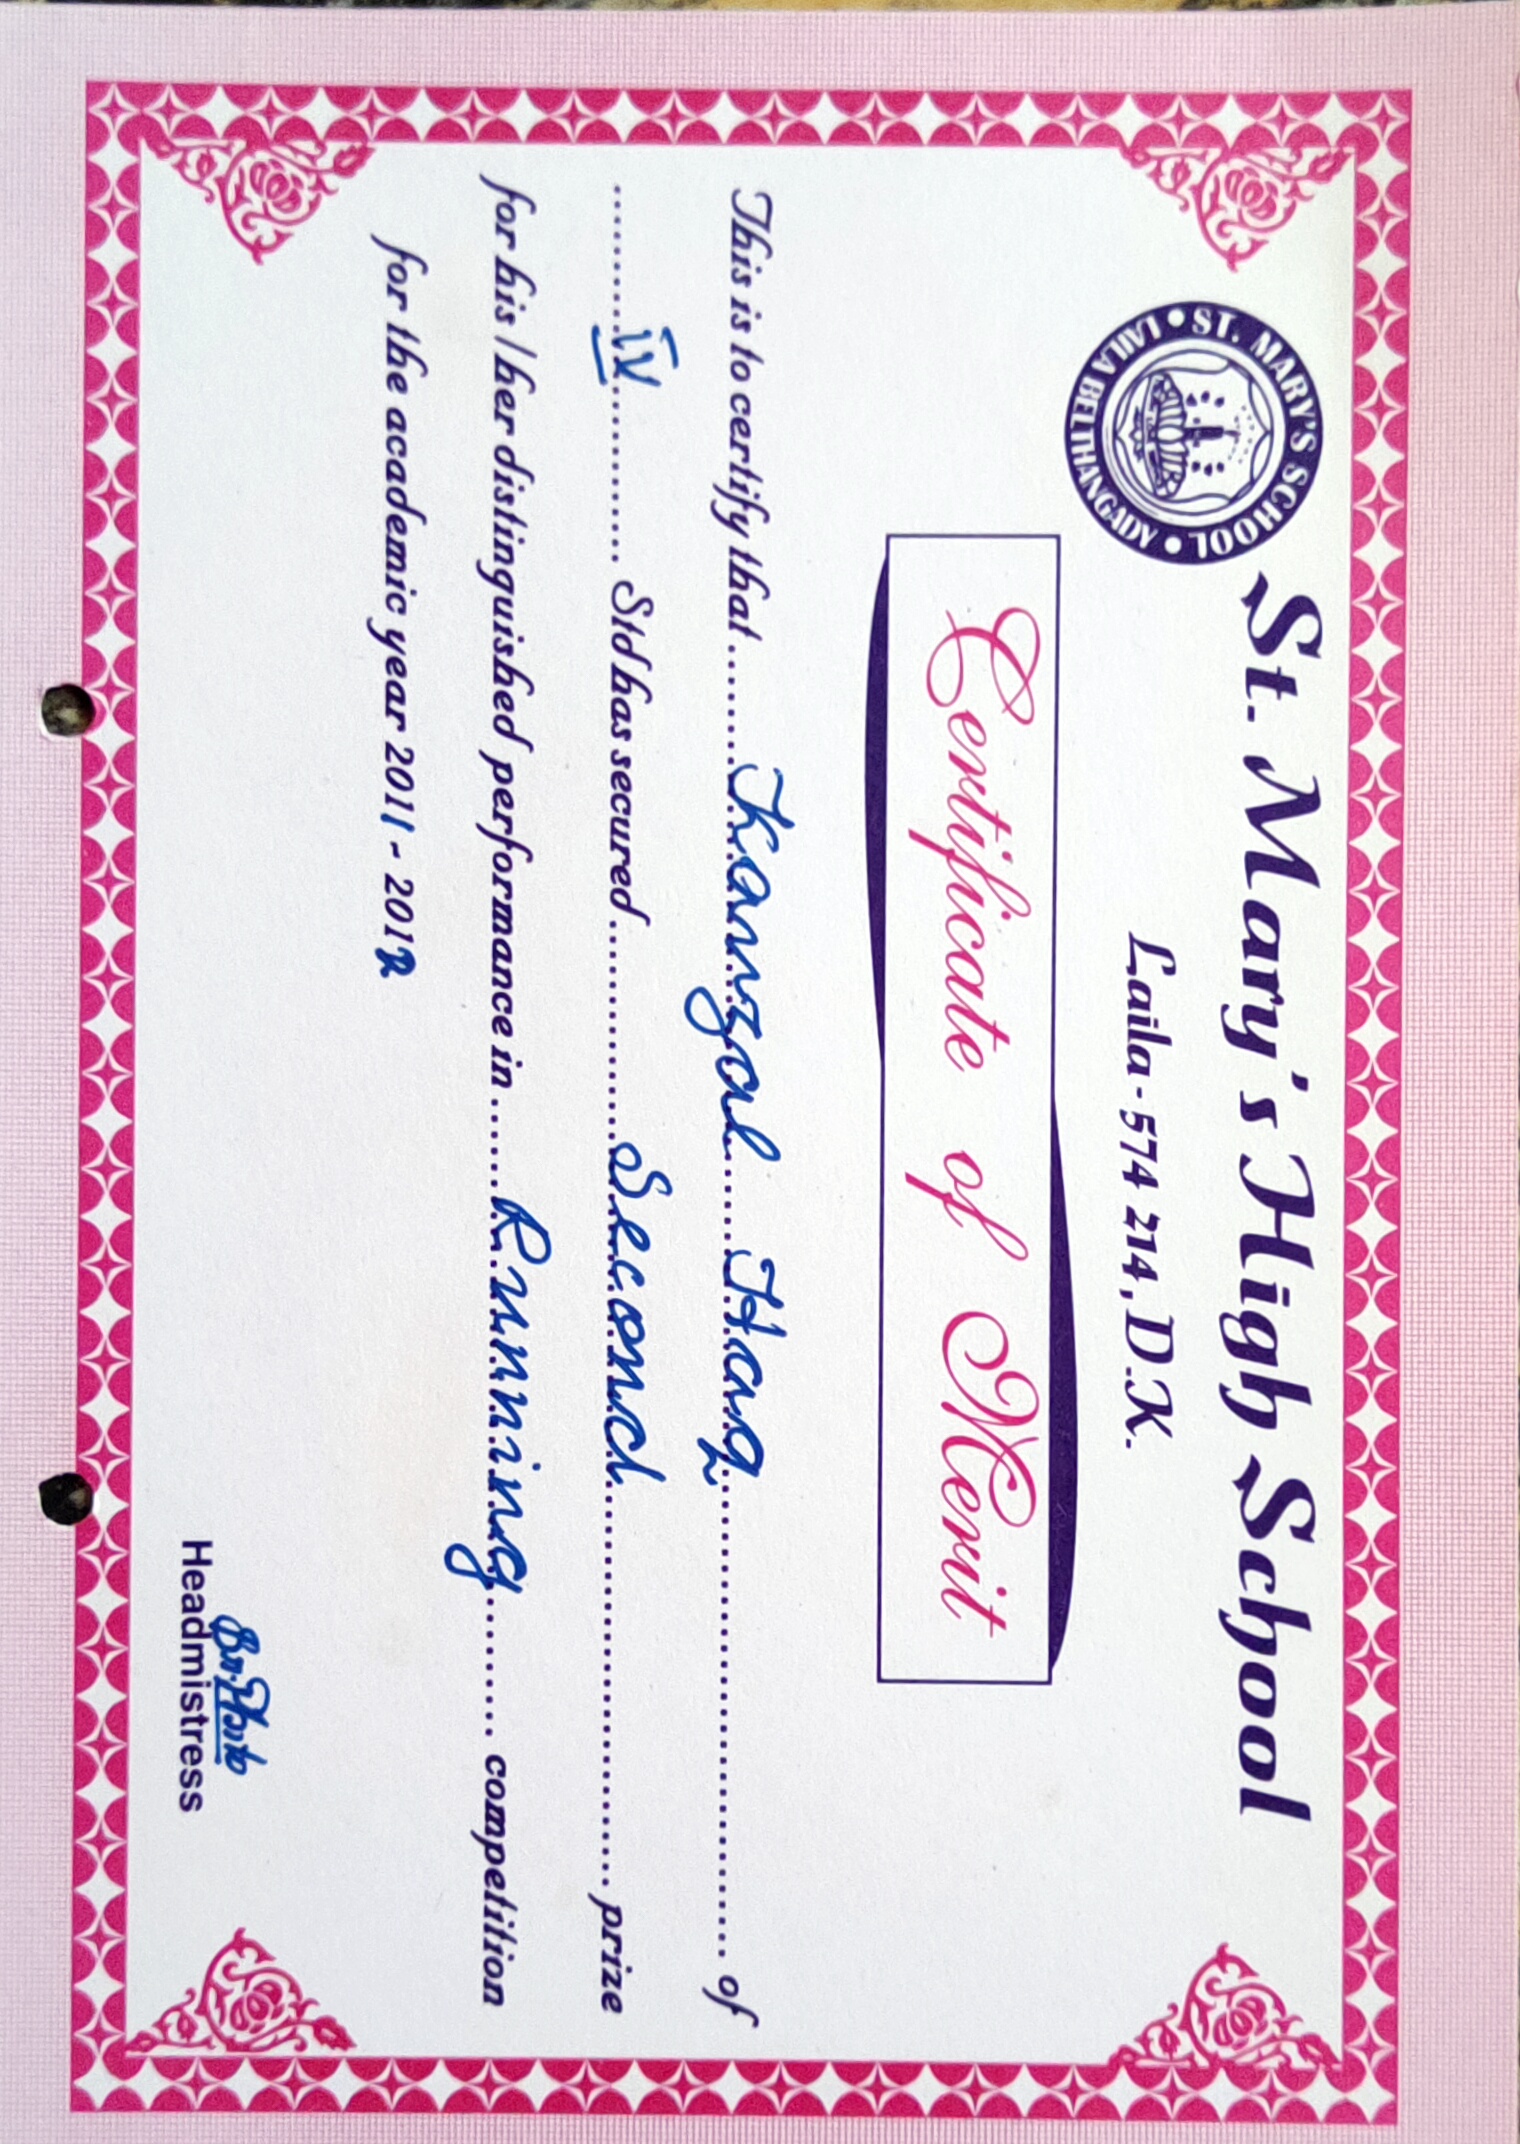 ST. MARY'S SCHOOL • LAILA BELTHANGADY •
St. Mary's High School
Laila - 574 214, D.K.
Certificate of Merit
This is to certify that ....... Kanzal ..... Haq .......................... of
......... IV ............ Std has secured ................ Second ........................... prize
for his / her distinguished performance in ...... Running ......... competition
for the academic year 2011 - 2012
Headmistress